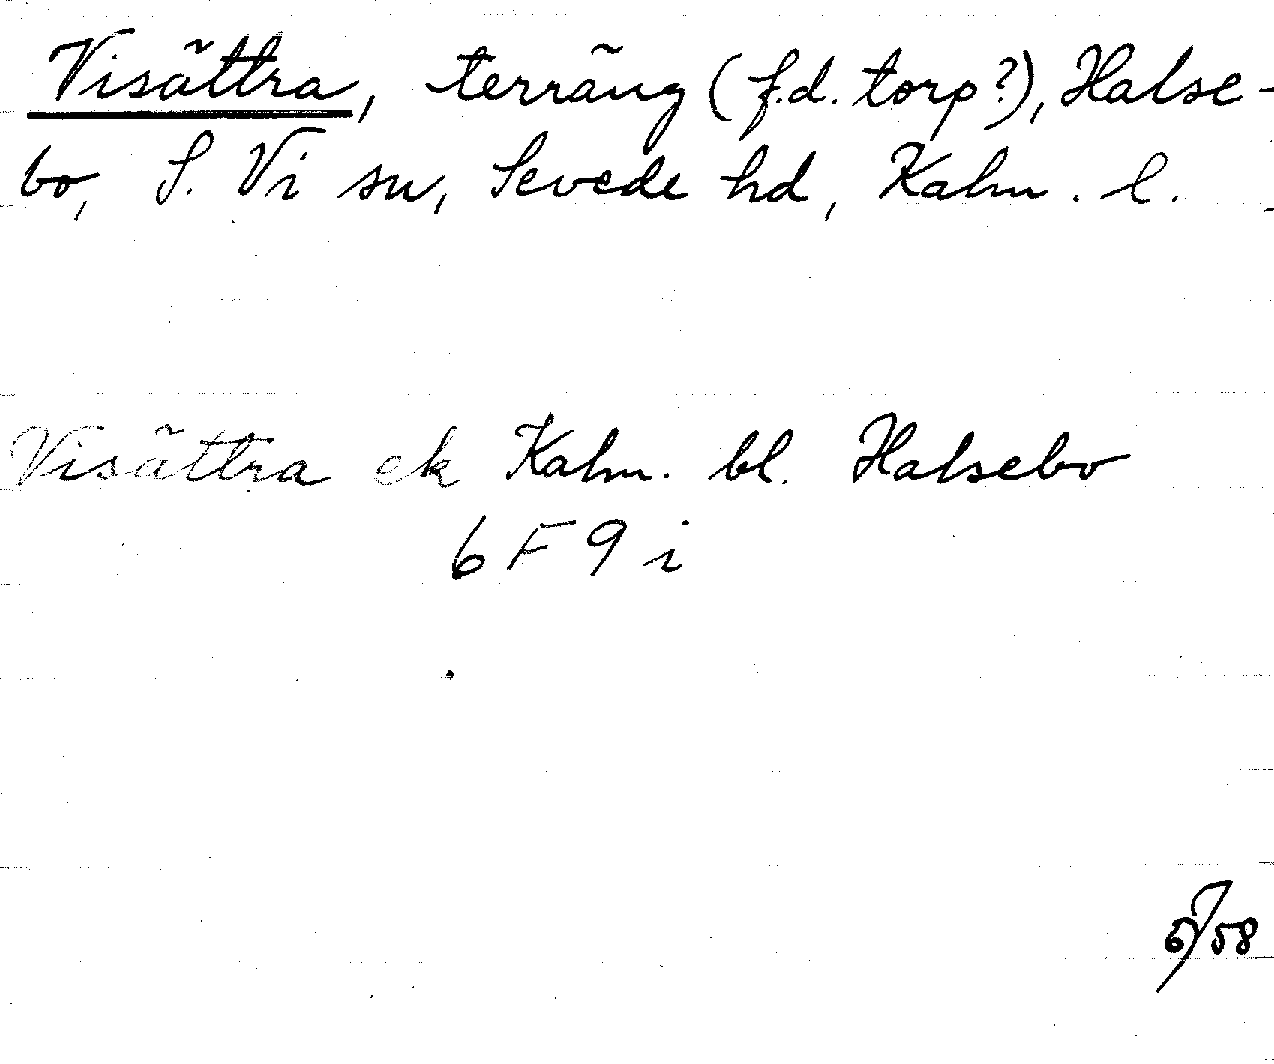 Visättra, terräng (f.d. torp?), Halse-
bo, S. Vi sn, Sevede hd, Kalm. l.
Visättra ek Kalm. bl. Halsebo
6 F 9 i